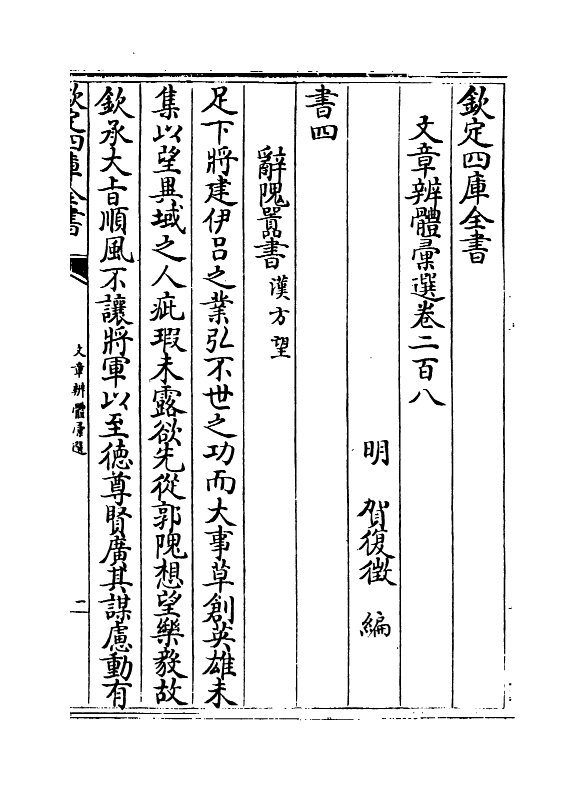 欽定四庫全書
文章辨體彚選卷二百八
明　賀復徵　編
書四
辭隗囂書漢方望
足下將建伊吕之業弘不世之功而大事草創英雄未
集以望異域之人疵瑕未露欲先從郭隗想望樂毅故
欽承大旨順風不讓將軍以至徳尊賢廣其謀慮動有
欽定四庫全書
文章辨體彚選